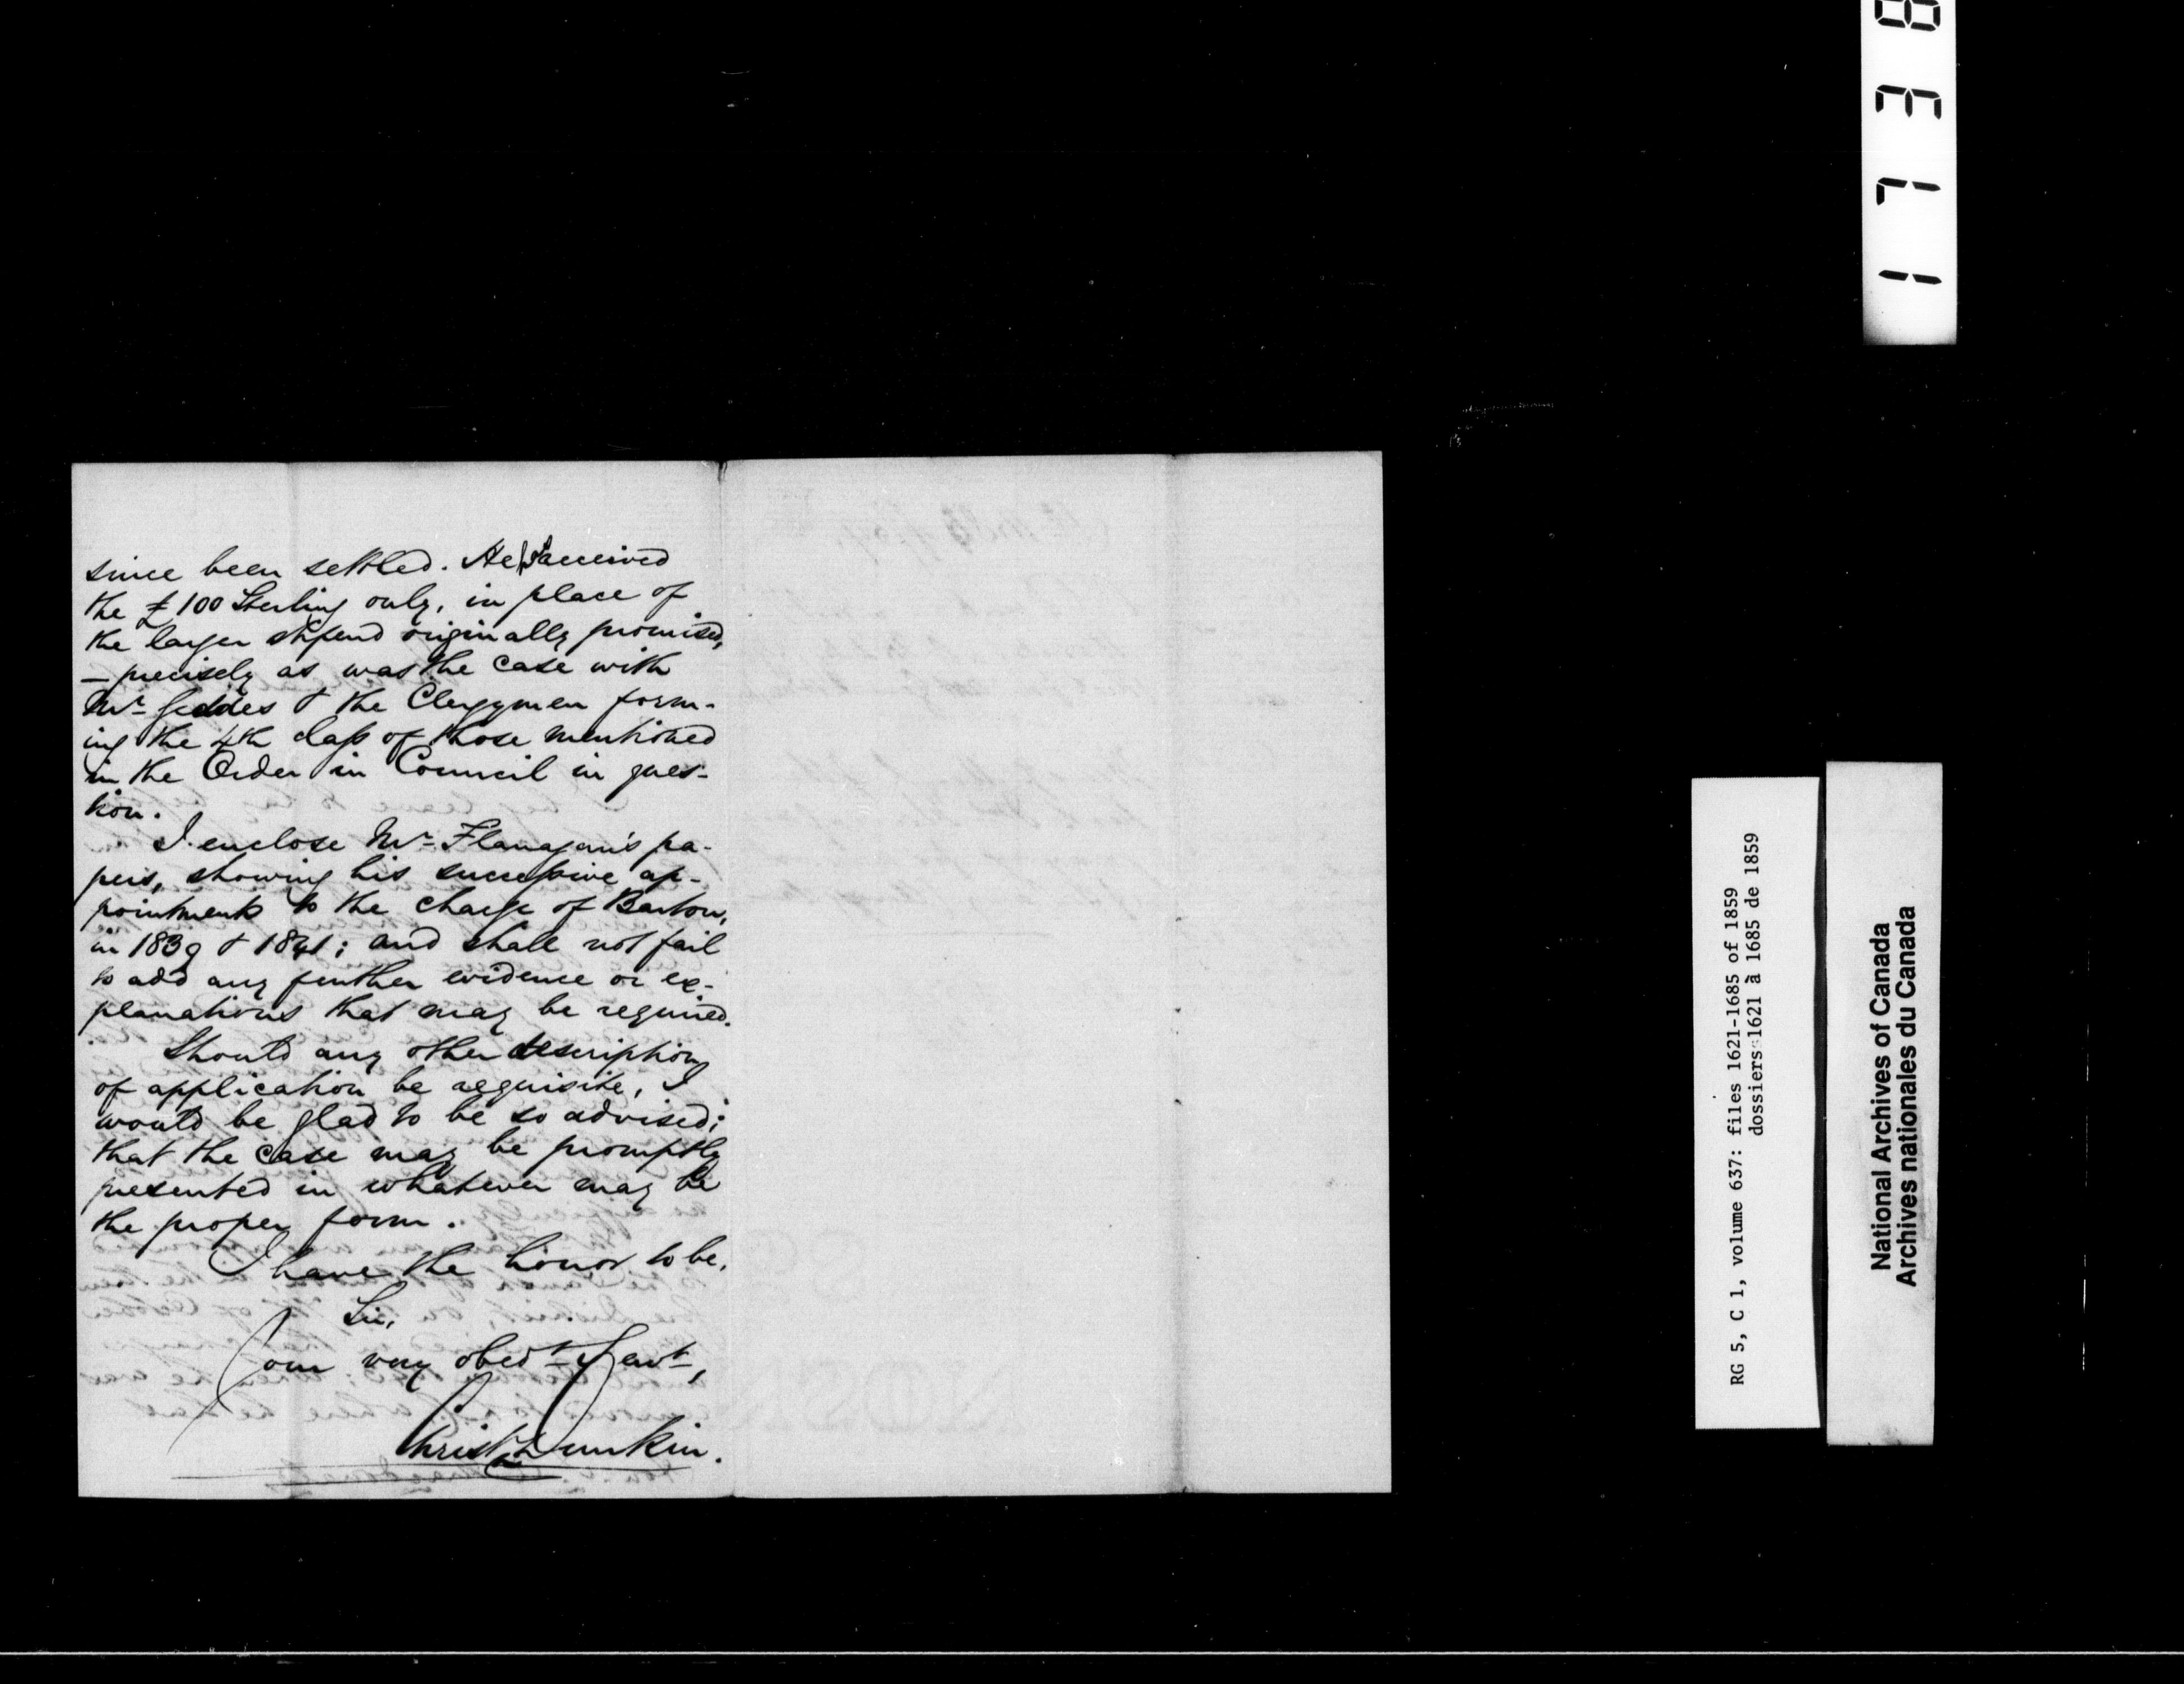 since been settled. He received
the £100 Sterling only, in place of
the larger stipend originally promised,
— precisely as was the case with
Mr Geddes & the Clergymen form-
ing the 4th class of those mentioned
in the Order in Council in ques-
tion.
I enclose Mr Flanagan's pa-
pers, showing his successive ap-
pointments to the charge of Barton,
in 1839 & 1841; and shall not fail
to add any further evidence or ex-
planations that may be required.
Should any other description
of application be requisite, I
would be glad to be so advised;
that the case may be promptly
presented in whatever may be
the proper form.
I have the honor to be,
Sir,
Your very obedt Servt,
Christr Dunkin.
1738
RG 5, C 1, volume 637: files 1621-1685 of 1859
dossiers 1621 à 1685 de 1859
National Archives of Canada
Archives nationales du Canada